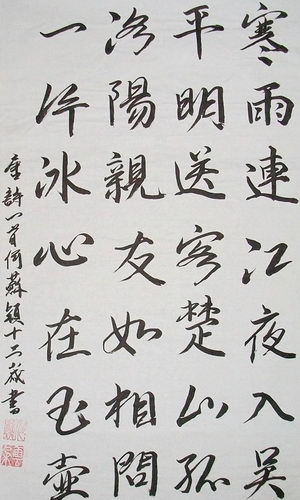 寒雨連江夜入吴
平明送客楚山孤
洛陽親友如相問
一片冰心在玉壺
唐詩一首何蘇鎮十六歲書